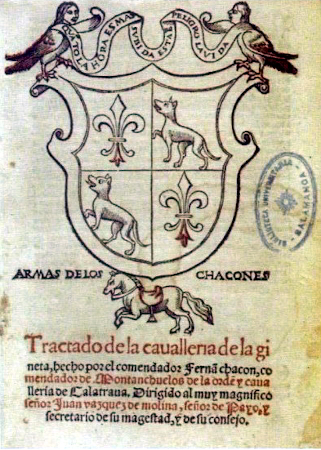 QVATO LA HORA ES MAS SVBIDA ESTA EN PELIGRO LA VIDA
BIBLIOTECA UNIVERSITARIA
SALAMANCA
ARMAS DE LOS CHACONES
Tractado de la caualleria de la gi
neta, hecho por el comendador Fernã chacon, co
mendador de Montanchuelos de la ordẽ y caua
lleria de Calatraua. Dirigido al muy magnifico
señor Juan vazquez de molina, señor de Payo, y
secretario de su magestad, y de su consejo.